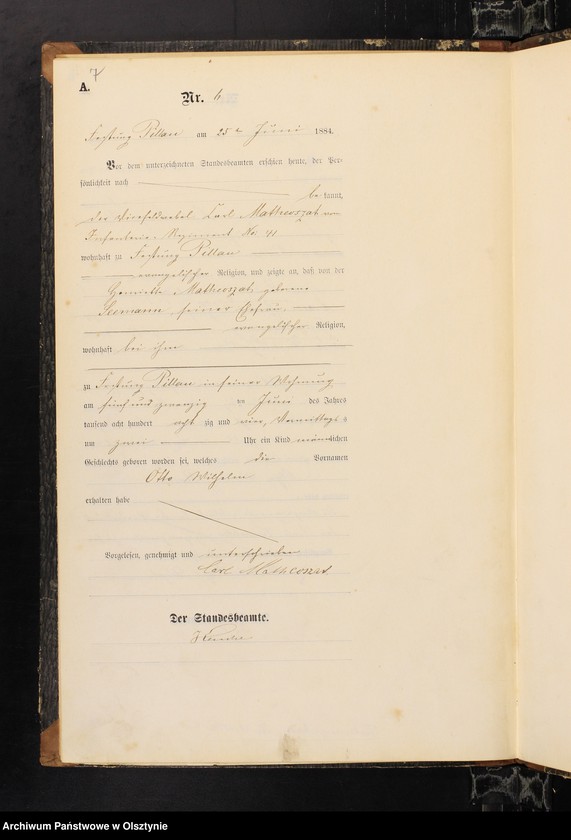 7
A.
Nr. 6
Festung Pillau am 25 ten Juni 1884.
Vor dem unterzeichneten Standesbeamten erschien heute, der Per-
sönlichkeit nach
be kannt,
der Vicefeldwebel Carl Matheoszat vom
Infanterie Regiment No 41
wohnhaft zu Festung Pillau
evangelischer Religion, und zeigte an, daß von der
Henriette Matheoszat, geborene
Seemann, seiner Ehefrau,
evangelischer Religion,
wohnhaft bei ihm
zu Festung Pillau in seiner Wohnung
am fünf und zwanzig ten Juni des Jahres
tausend acht hundert acht zig und vier, Vormittags
um zwei Uhr ein Kind männlichen
Geschlechts geboren worden sei, welches die Vornamen
Otto Wilhelm
erhalten habe
Vorgelesen, genehmigt und unterschrieben
Carl Matheoszat
Der Standesbeamte.
Archiwum Państwowe w Olsztynie